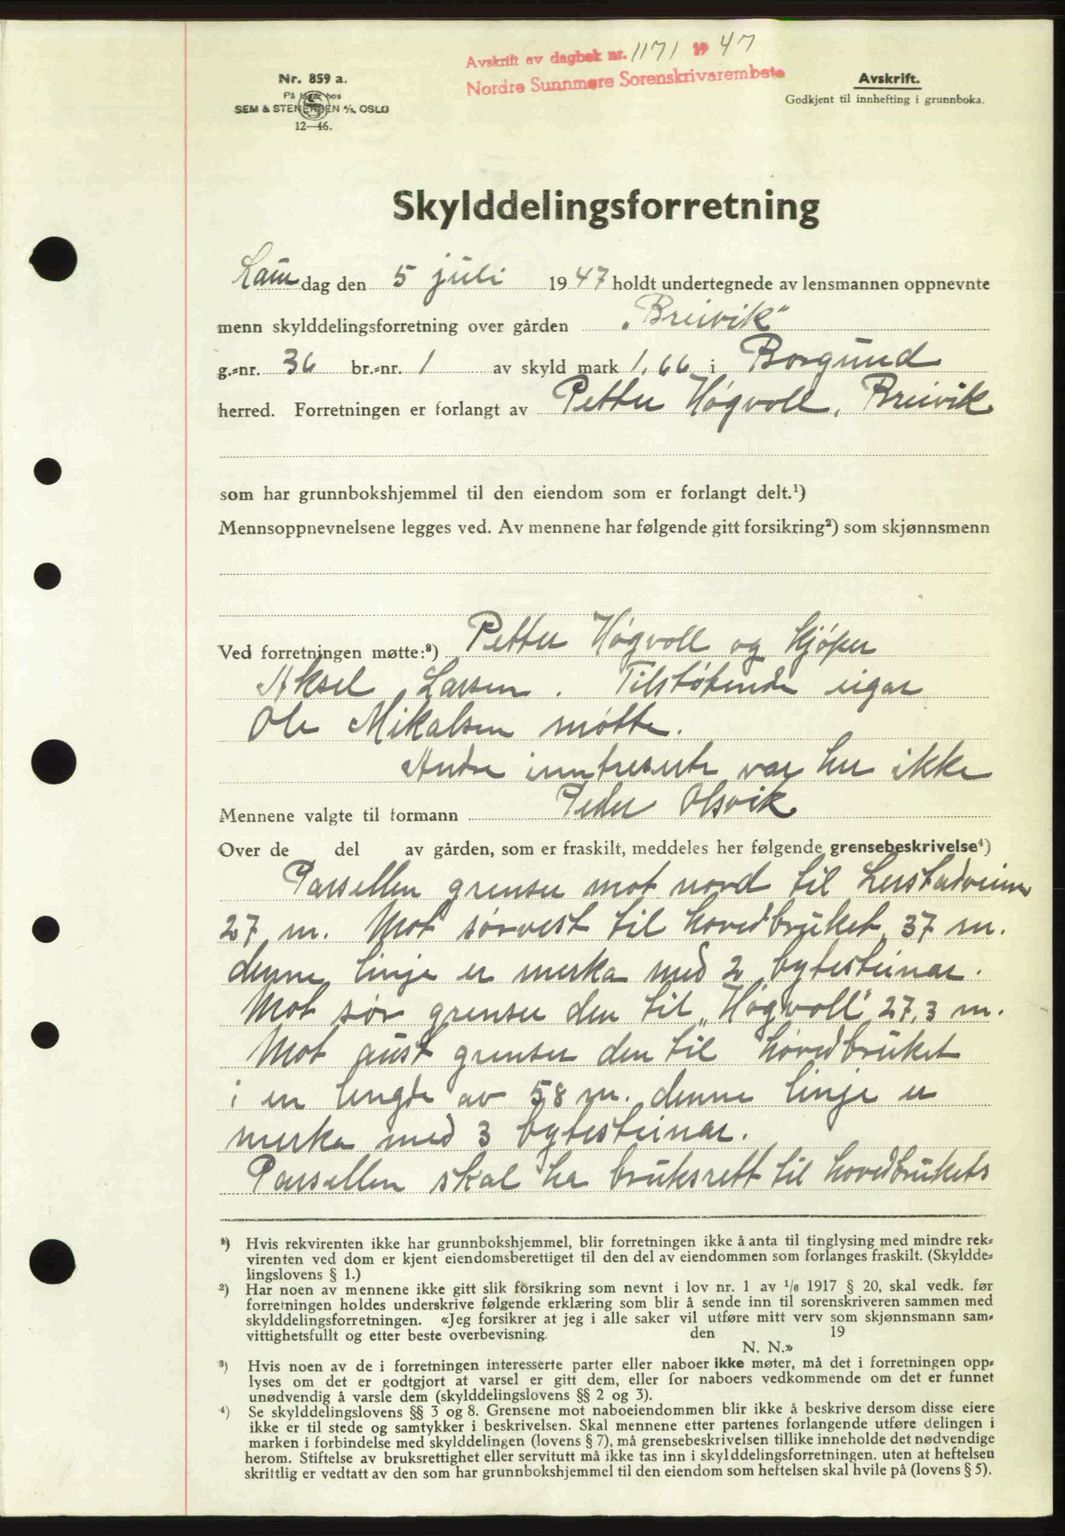 Nr. 859 a.
På lager hos
SEM & STENERSEN A/S, OSLO
12—46.
Avskrift av dagbok nr. 1171 1947
Nordre Sunnmøre Sorenskrivarembete
Avskrift.
Godkjent til innhefting i grunnboka.
Skylddelingsforretning
Laur dag den 5 juli 1947 holdt undertegnede av lensmannen oppnevnte
menn skylddelingsforretning over gården „Breivik"
g.=nr. 36 br.=nr. 1 av skyld mark 1,66 i Borgund
herred. Forretningen er forlangt av Petter Høgvoll, Breivik
som har grunnbokshjemmel til den eiendom som er forlangt delt.¹)
Mennsoppnevnelsene legges ved. Av mennene har følgende gitt forsikring²) som skjønnsmenn
Ved forretningen møtte:³) Petter Høgvoll og kjøper
Aksel Larsen. Tilstøtende eigar
Ole Mikalsen møtte.
Andre inntreserte var her ikke
Mennene valgte til formann Peder Olsvik
Over de del av gården, som er fraskilt, meddeles her følgende grensebeskrivelse⁴)
Parsellen grenser mot nord til Lerstadveien
27 m. Mot sørvest til hovedbruket 37 m.
denne linje er merka med 2 bytesteinar.
Mot sør grenser den til „Høgvoll" 27,3 m.
Mot aust grenser den til hovedbruket
i en lengde av 58 m. denne linje er
merka med 3 bytesteinar.
Parsellen skal ha bruksrett til hovedbrukets
¹) Hvis rekvirenten ikke har grunnbokshjemmel, blir forretningen ikke å anta til tinglysing med mindre rek=
virenten ved dom er kjent eiendomsberettiget til den del av eiendommen som forlanges fraskilt. (Skyldde=
lingslovens § 1.)
²) Har noen av mennene ikke gitt slik forsikring som nevnt i lov nr. 1 av ¹/₆ 1917 § 20, skal vedk. før
forretningen holdes underskrive følgende erklæring som blir å sende inn til sorenskriveren sammen med
skylddelingsforretningen. «Jeg forsikrer at jeg i alle saker vil utføre mitt verv som skjønnsmann sam=
vittighetsfullt og etter beste overbevisning. den 19
N. N.»
³) Hvis noen av de i forretningen interesserte parter eller naboer ikke møter, må det i forretningen opp=
lyses om det er godtgjort at varsel er gitt dem, eller for naboers vedkommende om det er funnet
unødvendig å varsle dem (skylddelingslovens §§ 2 og 3).
⁴) Se skylddelingslovens §§ 3 og 8. Grensene mot naboeiendommen blir ikke å beskrive dersom disse eiere
ikke er til stede og samtykker i beskrivelsen. Skal mennene etter partenes forlangende utføre delingen i
marken i forbindelse med skylddelingen (lovens § 7), må grensebeskrivelsen tillike inneholde det nødvendige
herom. Stiftelse av bruksrettighet eller servitutt må ikke tas inn i skylddelingsforretningen. uten at heftelsen
skriftlig er vedtatt av den som har grunnbokshjemmel til den eiendom som heftelsen skal hvile på (lovens § 5).